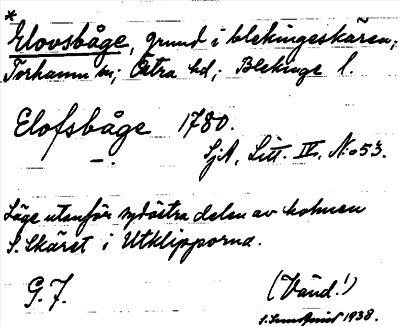 *
Elovsbåge, grund i blekingeskären;
Torhamn sn; Östra hd; Blekinge l.
Elofsbåge 1780.
SjA, Litt. IV, N:o 53.
Läge utanför sydöstra delen av holmen
S. Skäret i Utklipporna.
G. F. (Vänd!)
S. Sundquist 1938.